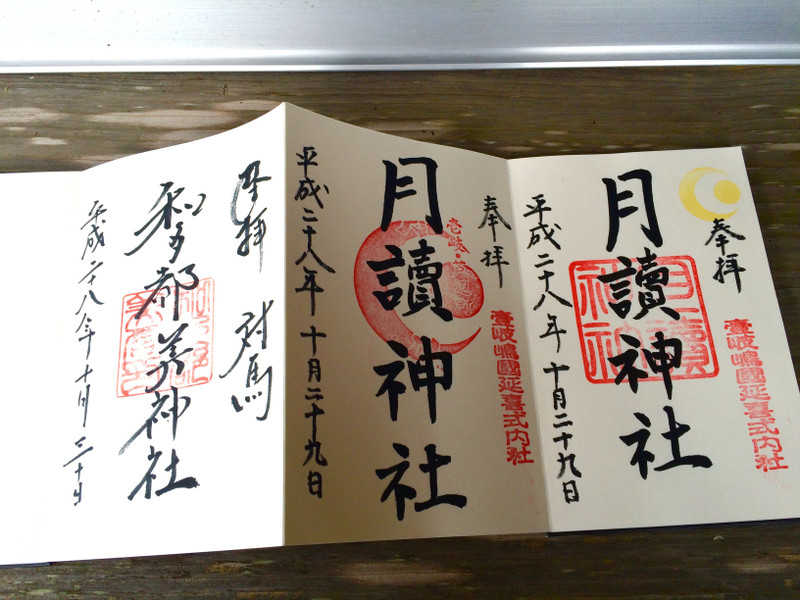 奉拝
壱岐嶋國延喜式内社
月讀神社
平成二十八年十月二十九日
奉拝
壱岐嶋國延喜式内社
月讀神社
平成二十八年十月二十九日
奉拝 対馬
和多都美神社
平成二十八年十月三十日